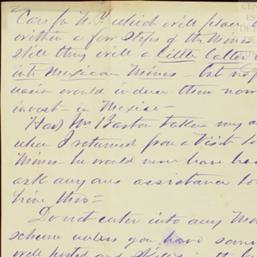 Cars for N.P. which will place
within a few steps of the Mines
still they will a little later
into Mexican Mines - but no
would induce them now
invest in Mexico -
Had Mr Barton taken my a
when I returned from a visit to
Mines he would now have ha
ask any one assistance to
him thro =
Do not enter into any M
scheme unless you have som
well posted and